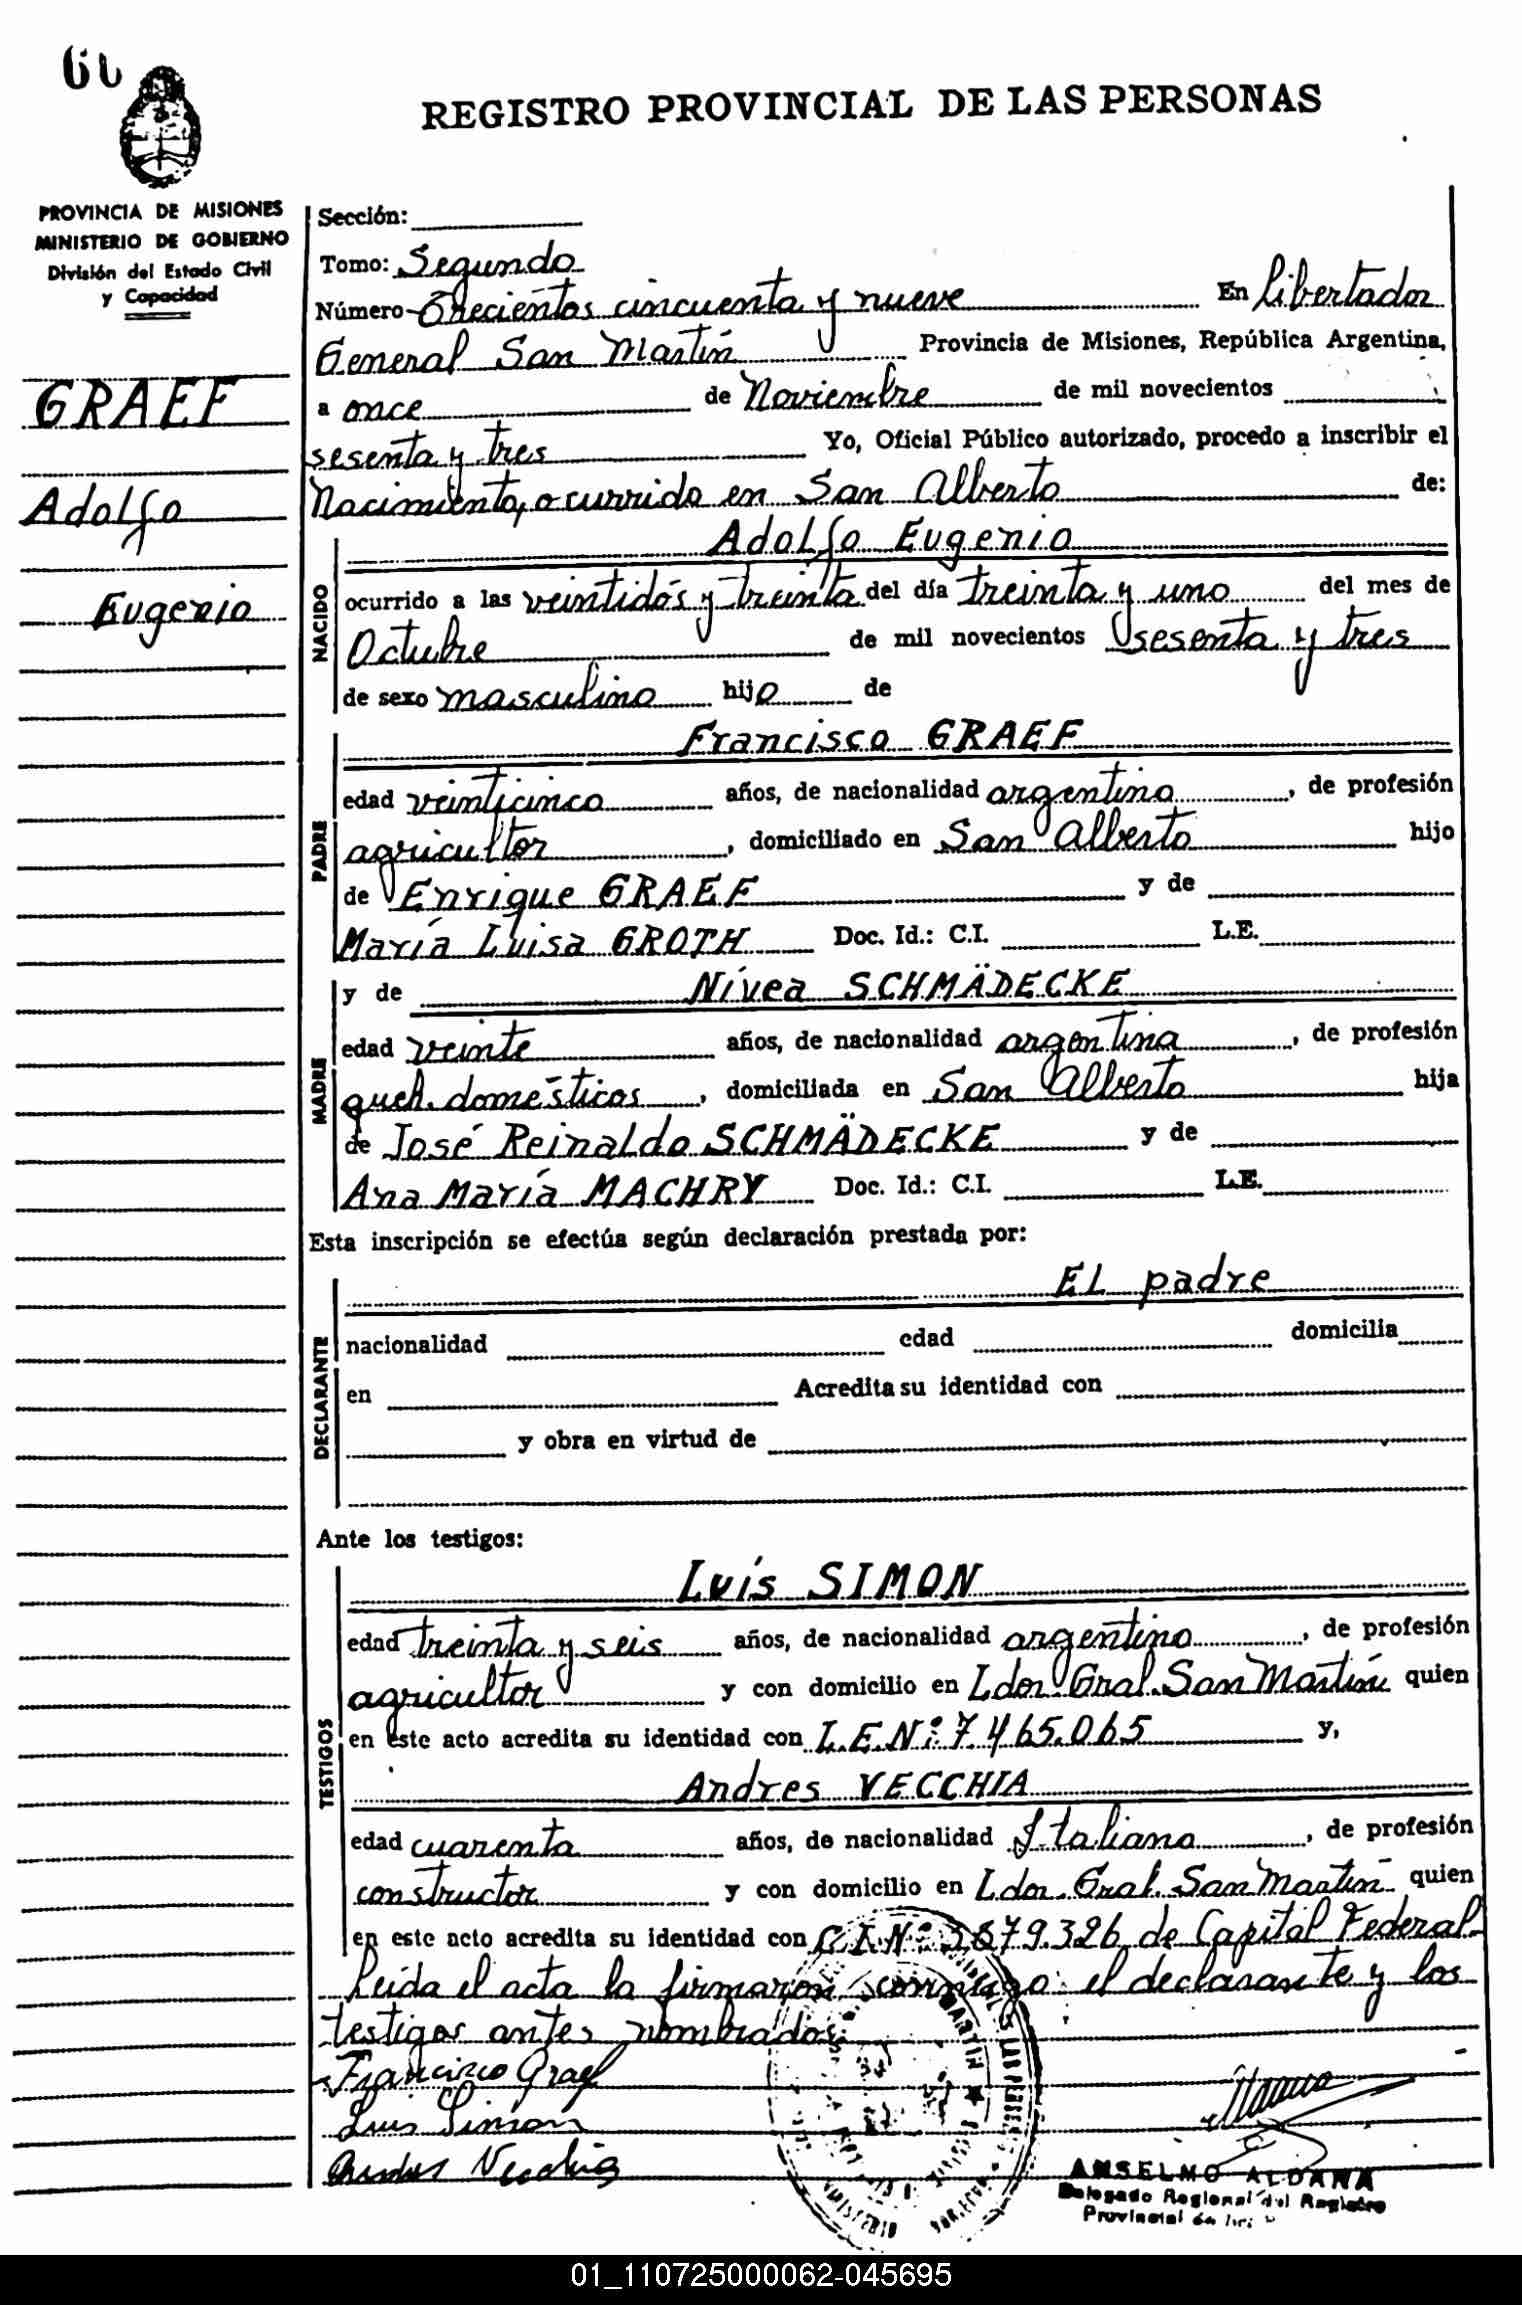 60
REGISTRO PROVINCIAL DE LAS PERSONAS
PROVINCIA DE MISIONES
MINISTERIO DE GOBIERNO
División del Estado Civil
y Capacidad
GRAEF
Adolfo
Eugenio
Sección:
Tomo: Segundo
Número Trecientos cincuenta y nueve En Libertador
General San Martín Provincia de Misiones, República Argentina,
a once de Noviembre de mil novecientos
sesenta y tres Yo, Oficial Público autorizado, procedo a inscribir el
Nacimiento, ocurrido en San Alberto de:
NACIDO
Adolfo Eugenio
ocurrido a las veintidós y treinta del día treinta y uno del mes de
Octubre de mil novecientos sesenta y tres
de sexo masculino hijo de
PADRE
Francisco GRAEF
edad veinticinco años, de nacionalidad argentina, de profesión
agricultor, domiciliado en San Alberto hijo
de Enrique GRAEF y de
María Luisa GROTH Doc. Id.: C.I. L.E.
MADRE
y de Nívea SCHMÄDECKE
edad veinte años, de nacionalidad argentina, de profesión
queh. domésticos, domiciliada en San Alberto hija
de José Reinaldo SCHMÄDECKE y de
Ana María MACHRY Doc. Id.: C.I. L.E.
Esta inscripción se efectúa según declaración prestada por:
DECLARANTE
EL padre
nacionalidad edad domicilia
en Acredita su identidad con
y obra en virtud de
Ante los testigos:
TESTIGOS
Luís SIMON
edad treinta y seis años, de nacionalidad argentino, de profesión
agricultor y con domicilio en Ldor. Gral. San Martín quien
en este acto acredita su identidad con L.E.Nº: 7.465.065 y,
Andres VECCHIA
edad cuarenta años, de nacionalidad Italiana, de profesión
constructor y con domicilio en Ldor. Gral. San Martín quien
en este acto acredita su identidad con C.I.Nº 3879.326 de Capital Federal.
Leída el acta la firmaron conmigo el declarante y los
testigos antes nombrados.
Francisco Graef
Luis Simon
Andres Vecchia
MARTIN
LAS PERSO
MINISTERIO
ANSELMO ALDANA
Delegado Regional del Registro
Provincial de
01_110725000062-045695